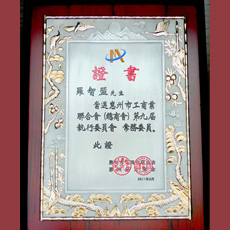 證書
羅智盈先生
當選惠州市工商業
聯合會(總商會)第九屆
執行委員會 常務委員。
此證